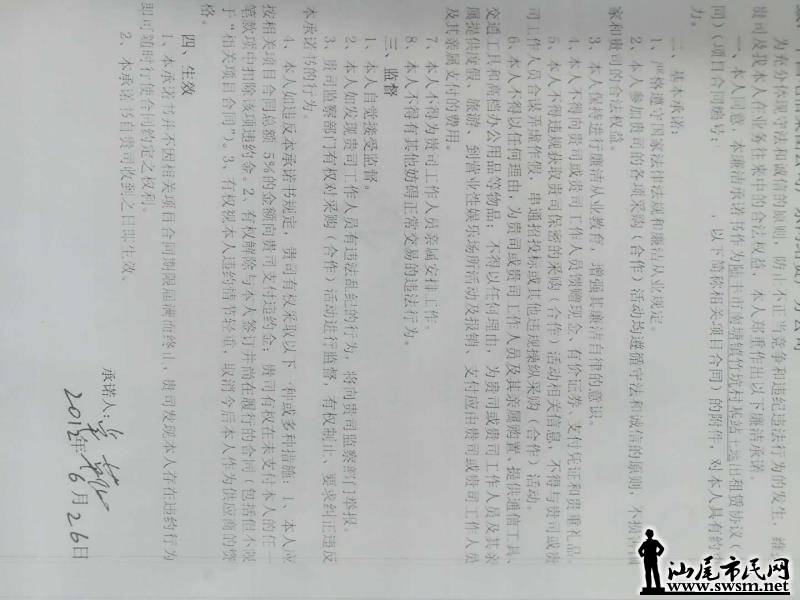 为充分体现守法和诚信的原则，防止不正当竞争和违纪违法行为的发生，维
贵司及我本人在业务往来中的合法权益，本人郑重作出以下廉洁承诺。
一、本人同意，本廉洁承诺书作为陆丰市
租赁协议（
同）（项目合同编号：　　　，以下简称相关项目合同）的附件，对本人具有约
力。
二、基本承诺：
1、严格遵守国家法律法规和廉洁从业规定。
2、本人参加贵司的各项采购（合作）活动均遵循守法和诚信的原则，不损
家和贵司的合法权益。
3、本人保持进行廉洁从业教育，增强其廉洁自律的意识。
4、本人不得向贵司或贵司工作人员馈赠现金、有价证券、支付凭证和贵重礼品。
5、本人不得违规获取贵司保密的采购（合作）活动相关信息，不得与贵司或贵
司工作人员合谋弄虚作假、串通招投标或其他违规操纵采购（合作）活动。
6、本人不得以任何理由，为贵司或贵司工作人员及其亲属购置、提供通信工具、
交通工具和高档办公用品等物品；不得以任何理由，为贵司或贵司工作人员及其亲
属提供度假、旅游、到营业性娱乐场所活动及报销、支付应由贵司或贵司工作人员
及其亲属支付的费用。
7、本人不得为贵司工作人员亲属安排工作。
8、本人不得有其他妨碍正常交易的违法行为。
三、监督
1、本人自觉接受监督。
2、本人如发现贵司工作人员有违法乱纪的行为，将向贵司监察部门举报。
3、贵司监察部门有权对采购（合作）活动进行监督，有权制止、要求纠正违反
本承诺书的行为。
4、本人如违反本承诺书规定，贵司有权采取以下一种或多种措施：1、本人应
按相关项目合同总额 5%的金额向贵司支付违约金；贵司有权在未支付本人的任一
笔款项中扣除该项违约金。2、有权解除与本人签订并尚在履行的合同（包括但不限
于“相关项目合同”）。3、有权视本人违约情节轻重，取消今后本人作为供应商的资
格。
四、生效
1、本承诺书并不因相关项目合同期限届满而终止，贵司发现本人存在违约行为
即可随时行使合同约定之权利。
2、本承诺书自贵司收到之日即生效。
承诺人：
年6月26日
汕尾市民网
www.swsm.net